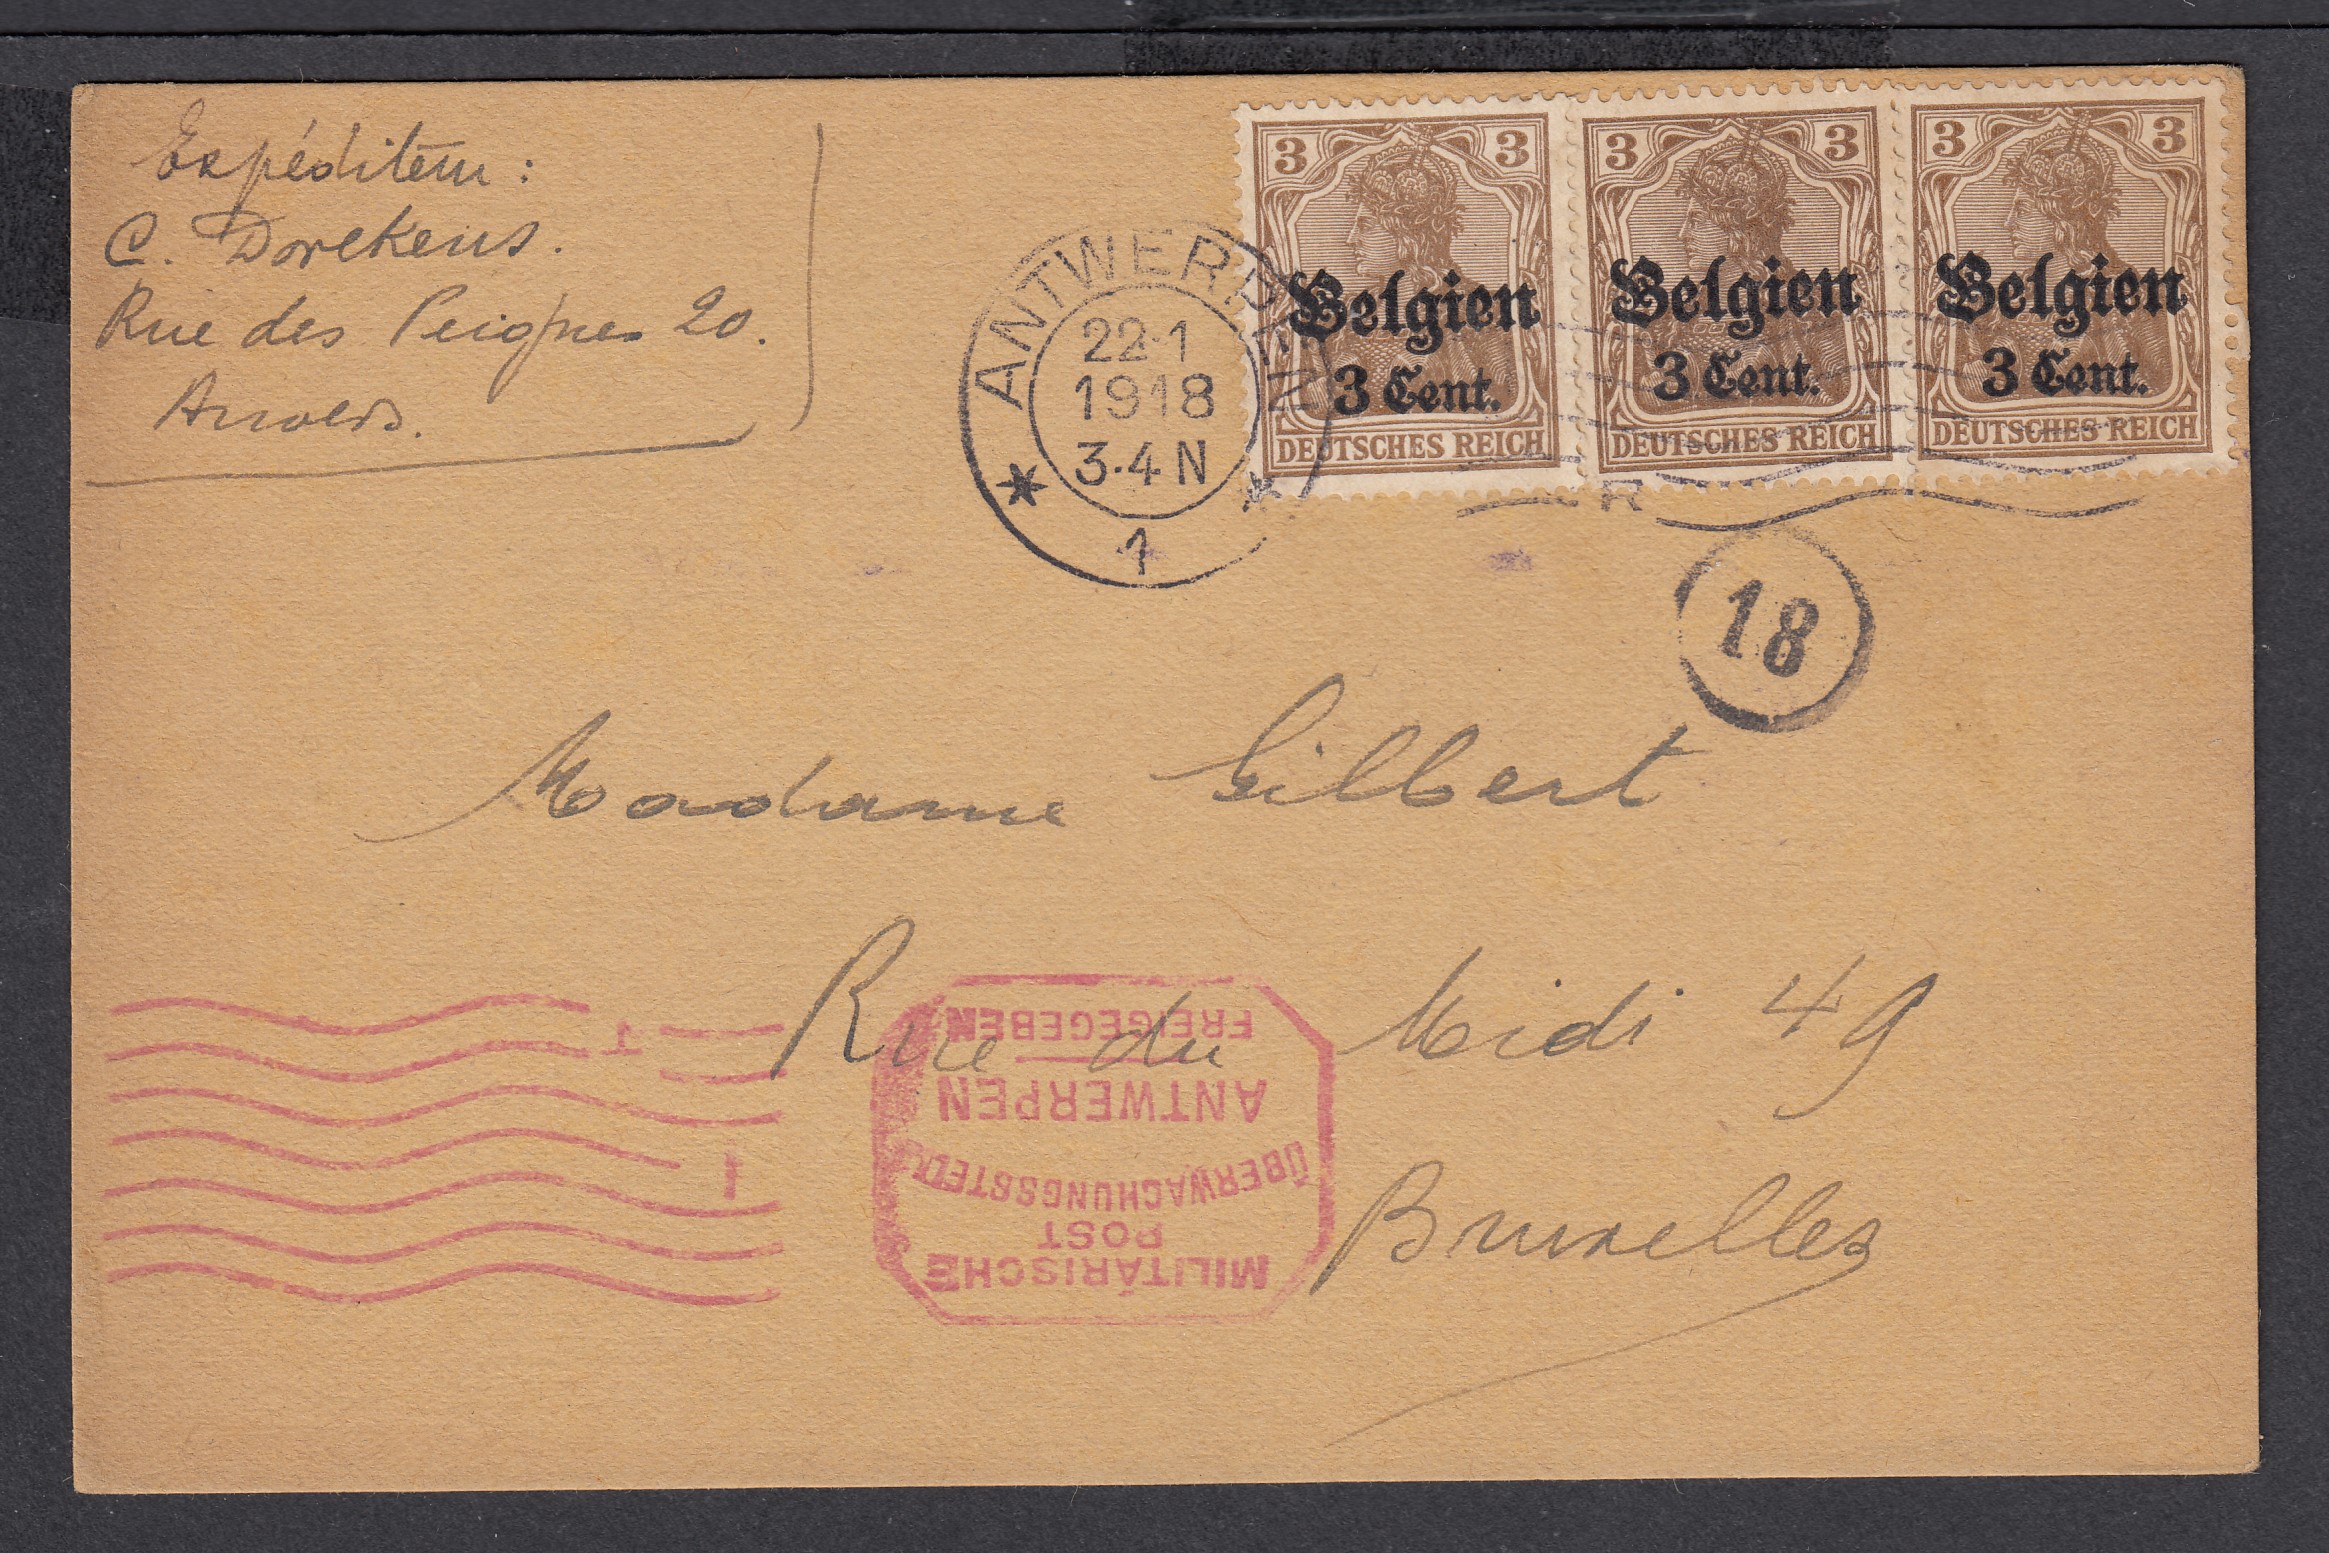 Expéditeur:
C. Dorekens.
Rue des Peignes 20.
Anvers.
3 3
Belgien
3 Cent.
DEUTSCHES REICH
3 3
Belgien
3 Cent.
DEUTSCHES REICH
3 3
Belgien
3 Cent.
DEUTSCHES REICH
ANTWERPEN
22.1
1918
3-4 N
* 1 *
R
18
Madame Gilbert
Rue du Midi 49
Bruxelles
MILITÄRISCHE
POST
ÜBERWACHUNGSSTELLE
ANTWERPEN
FREIGEGEBEN